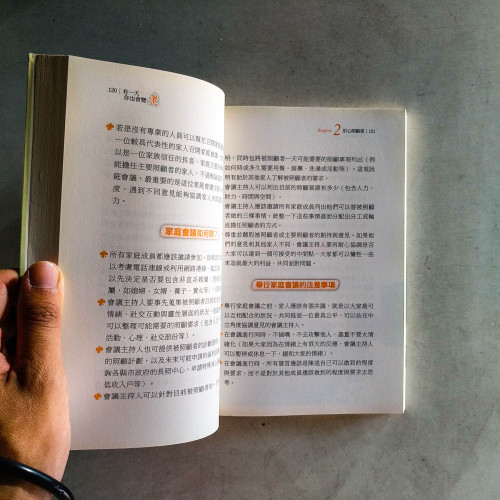 120 | 有一天
你也會變 老
若是沒有專業的人員可以幫忙召開
一位較具代表性的家人召開家庭會
以是一位家族信任的長者,家庭
能擔任主要照顧者的家人。不過
庭會議,最重要的是這位家庭會議
度,遇到不同意見能夠協調家人的
家庭會議如何
所有家庭成員都應該邀請參加,
以考慮電話連線或利用網路連線
以先決定是否要包含非直系親屬
屬,如媳婦、女婿、養子、養女等
會議主持人要事先蒐集被照顧者
情緒、社交互動與靈性層面的狀況
可以整理可能需要的照顧要求(包含
活動、心理、社交部份等)。
會議主持人也可提供被照顧者的
的照顧計劃,以及未來可能申請的
詢各縣市政府的長照中心,申請
低收入戶等)。
會議主持人可以針對目前被照顧者
chapter 2 用心照顧我 | 121
明,同時也將被照顧者一天可能需要的照顧事項列出(例
如何時或多久需要用餐、服藥、洗澡或活動等),這項說
明有助於其他家人了解被照顧者的需求。
會議主持人可以列出目前的照顧資源有多少(包含人力、
財力、時間與空間)
會議主持人應該邀請所有家庭成員列出他們可以替被照顧
者做的三樣事情,統整一下這些事情應如何分配出分工或輪
流擔任照顧的方式。
尊重並聽取被照顧者或主要照顧者的期待與意見。如果他
們的意見和其他家人不同,會議主持人要有耐心協調是否
大家可以達到一個可接受的中間點,大家都可以犧牲一些
來造就最大的利益,共同面對問題。
舉行家庭會議的注意事項
舉行家庭會議之前,家人應該有個共識,就是以大家最可
以互相配合的狀況,共同推派一位最具公平,可以站在中
立角度協調意見的會議主持人。
在會議進行間,不插嘴、不去攻擊他人、盡量不要火情
緒化(如果大家因為在情緒上有很大的反應,會議主持人
可以暫停或休息一下,緩和大家的情緒)。
在會議進行時,所有發言應該是陳述自己可以做到的程度
與要求,而不是對於其他成員應該做到的程度與要求去思
考。